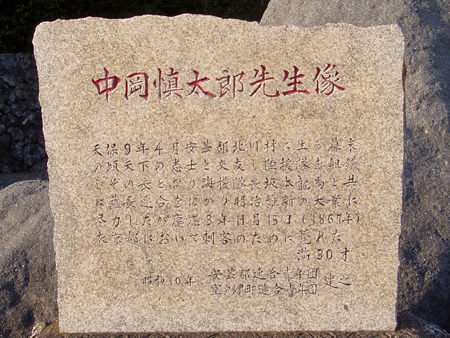 中岡慎太郎先生像
天保9年4月安芸郡北川村に生る幕末
の頃天下の志士と交友し陸援隊を組織
しその長となり海援隊長坂本龍馬と共
に薩長連合をはかり明治維新の大業に
尽力したが慶応3年11月15日(1867年)
京都において刺客のために斃れた
満30才
昭和10年
安芸郡連合青年団
連合青年団
建之